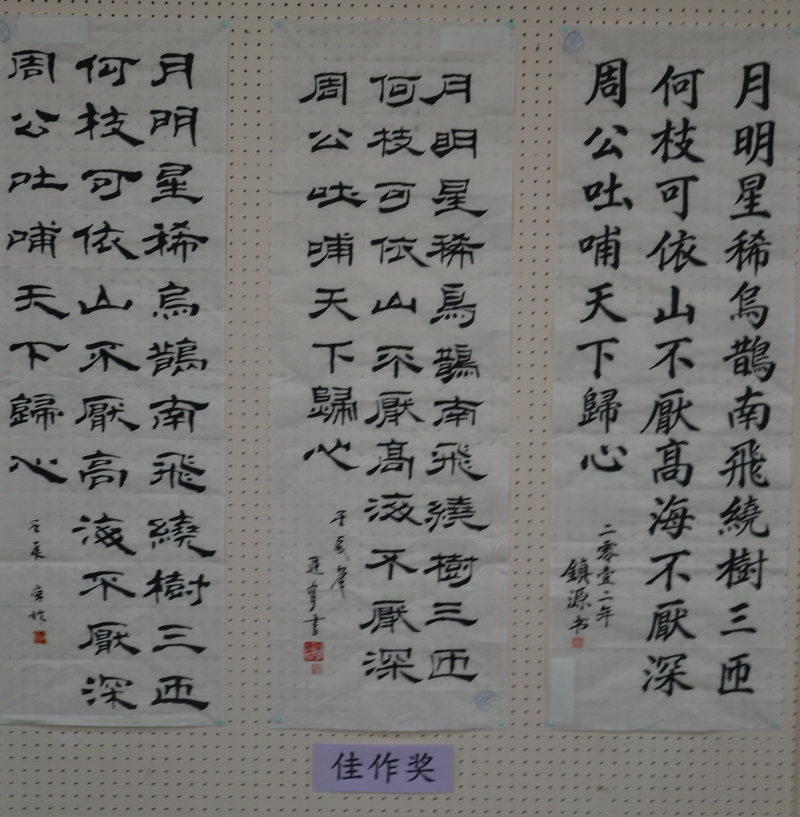 月明星稀烏鵲南飛繞樹三匝
何枝可依山不厭高海不厭深
周公吐哺天下歸心
二零壹二年
鎮源书
月明星稀烏鵲南飛繞樹三匝
何枝可依山不厭高海不厭深
周公吐哺天下歸心
書
月明星稀烏鵲南飛繞樹三匝
何枝可依山不厭高海不厭深
周公吐哺天下歸心
壬辰
佳作奖